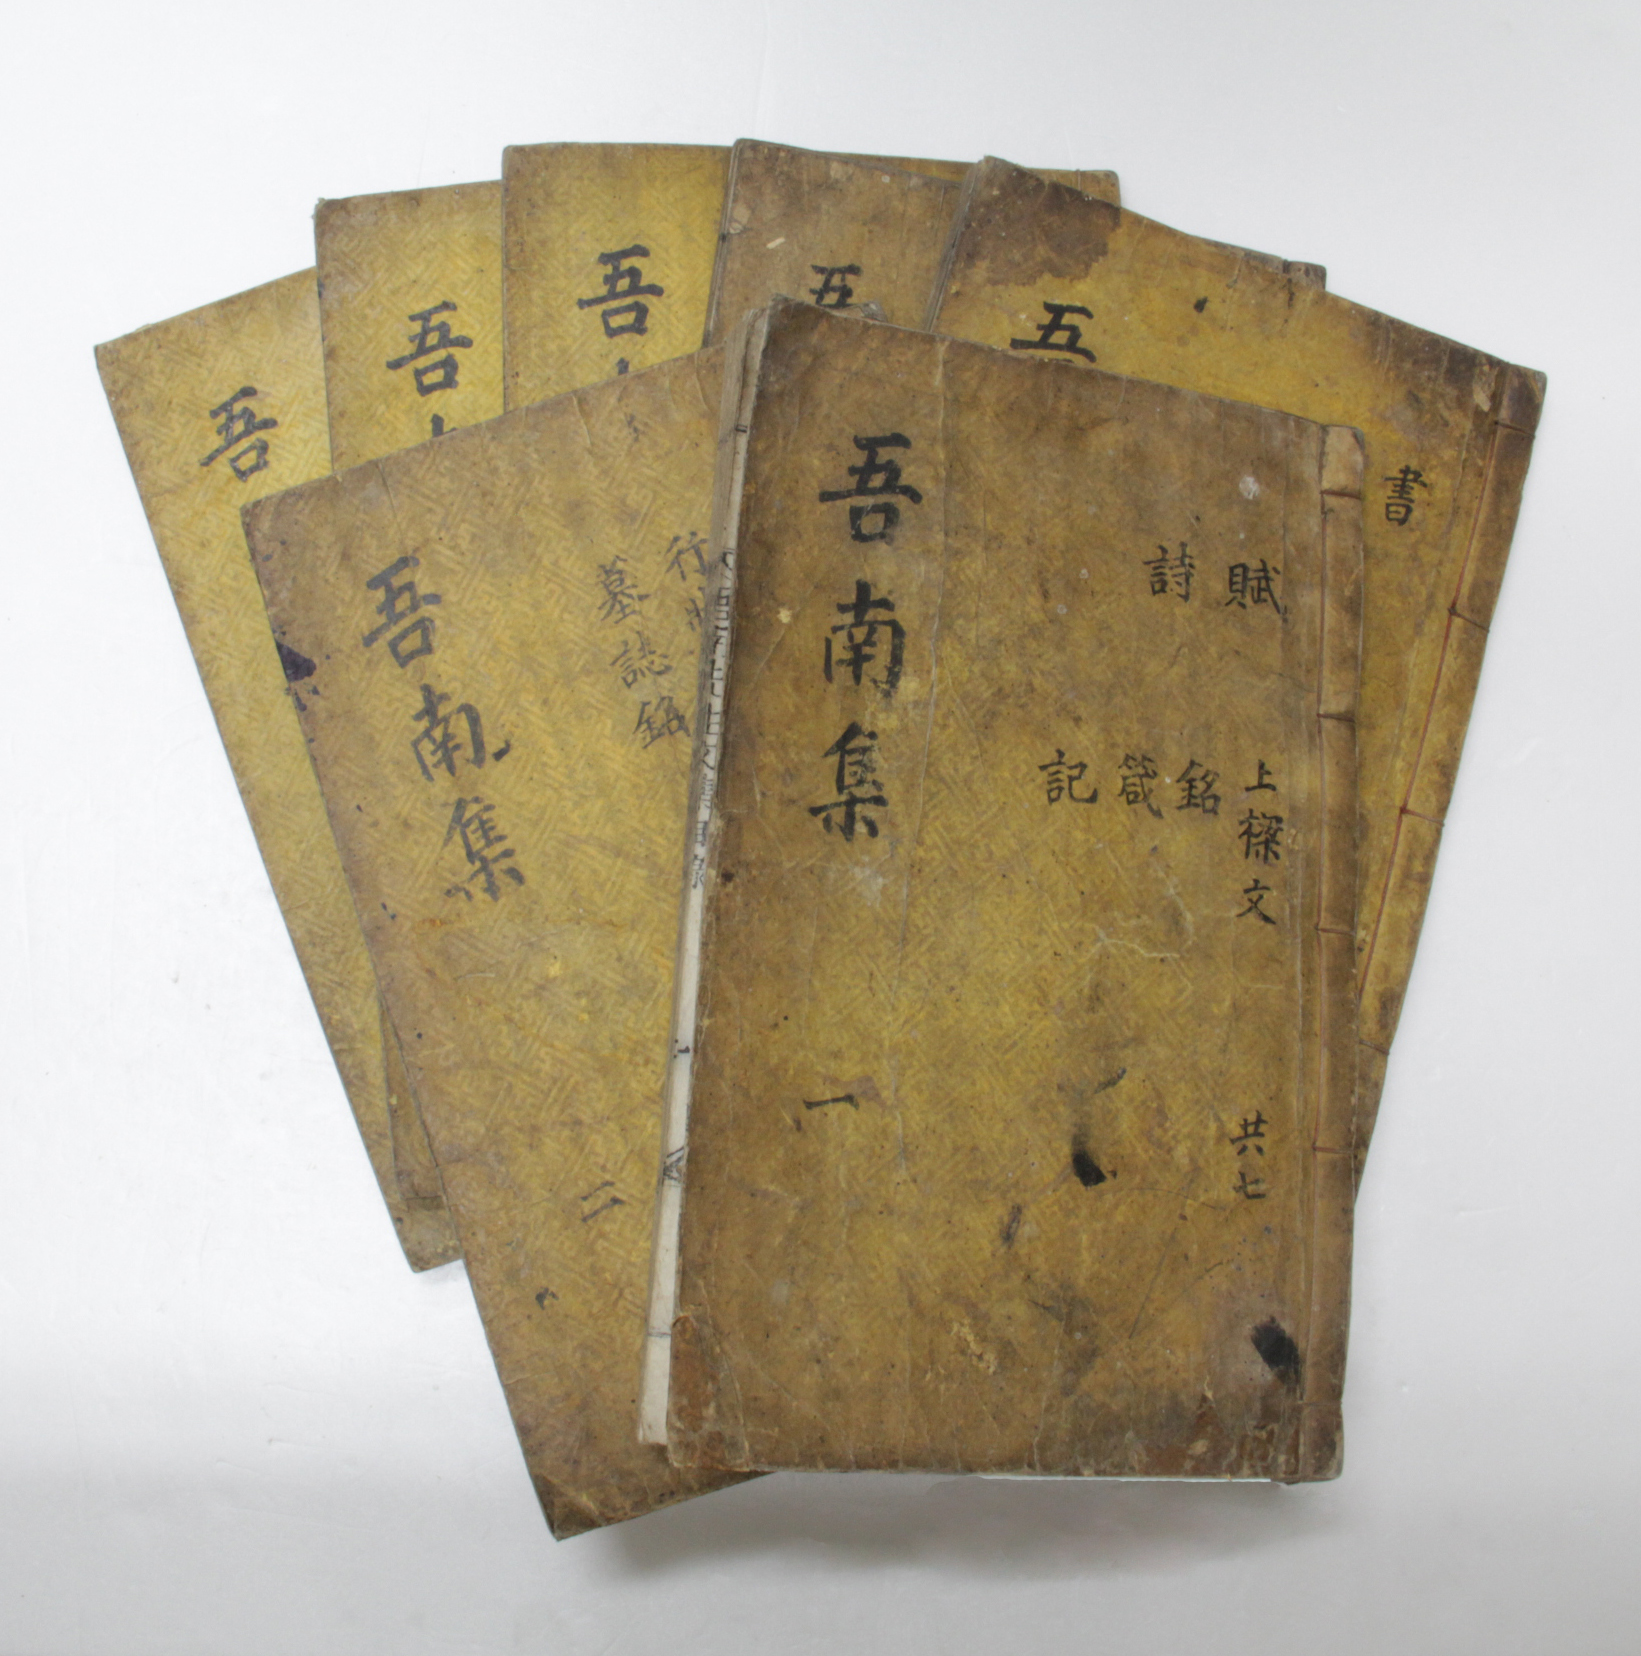 吾南集
一
賦
詩
上樑文
銘
箴
記
共七
吾南集
二
行狀
墓誌銘
吾
吾
吾
吾
書